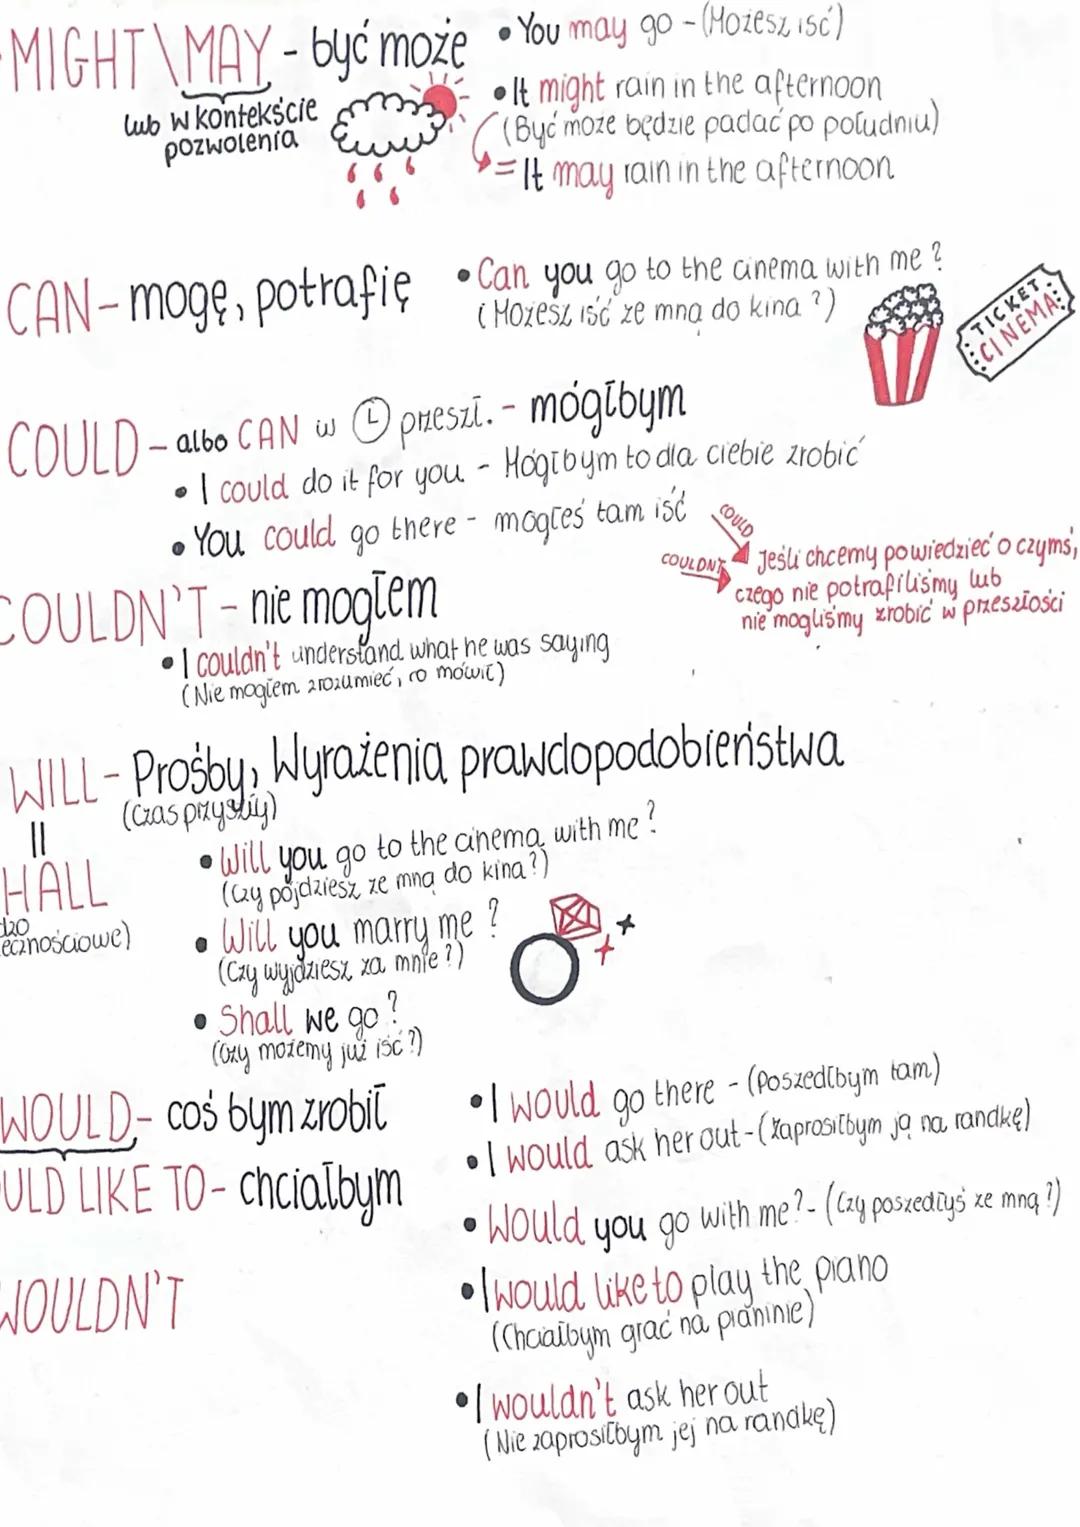 MIGHT \ MAY - być może
lub w kontekście
pozwolenia
• You may go - (Możesz iść)
• It might rain in the afternoon
(Być może będzie padać po południu)
= It may rain in the afternoon
CAN - mogę, potrafię
• Can you go to the cinema with me?
(Możesz iść ze mną do kina?)
TICKET
CINEMA
COULD - albo CAN w przeszł. - mógłbym
• I could do it for you - Mógłbym to dla ciebie zrobić
• You could go there - mogłeś tam iść
COULD
COULDN'T
Jeśli chcemy powiedzieć o czymś,
czego nie potrafiliśmy lub
nie mogliśmy zrobić w przeszłości
COULDN'T - nie mogłem
• I couldn't understand what he was saying
(Nie mogłem zrozumieć, co mówił)
WILL - Prośby, Wyrażenia prawdopodobieństwa
(czas przyszły)
=
HALL
dzo
ecznościowe)
• Will you go to the cinema with me?
(Czy pójdziesz ze mną do kina?)
• Will you marry me?
(Czy wyjdziesz za mnie?)
• Shall we go?
(Czy możemy już iść?)
WOULD - coś bym zrobił
• I would go there - (Poszedłbym tam)
• I would ask her out - (Zaprosiłbym ją na randkę)
ULD LIKE TO - chciałbym
• Would you go with me? - (Czy poszedłyś ze mną?)
WOULDN'T
• I would like to play the piano
(Chciałbym grać na pianinie)
• I wouldn't ask her out
(Nie zaprosiłbym jej na randkę)